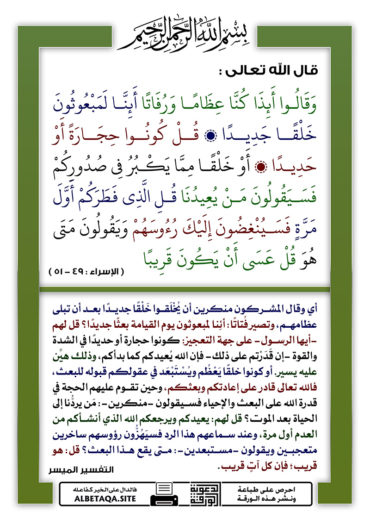 بسم الله الرحمن الرحيم
قال الله تعالى :
وَقَالُوا أَئِذَا كُنَّا عِظَامًا وَرُفَاتًا أَئِنَّا لَمَبْعُوثُونَ
خَلْقًا جَدِيدًا ۞ قُلْ كُونُوا حِجَارَةً أَوْ
حَدِيدًا ۞ أَوْ خَلْقًا مِمَّا يَكْبُرُ فِي صُدُورِكُمْ
فَسَيَقُولُونَ مَنْ يُعِيدُنَا قُلِ الَّذِي فَطَرَكُمْ أَوَّلَ
مَرَّةٍ فَسَيُنْغِضُونَ إِلَيْكَ رُءُوسَهُمْ وَيَقُولُونَ مَتَى
هُوَ قُلْ عَسَى أَنْ يَكُونَ قَرِيبًا
( الإسراء : ٤٩ - ٥١ )
أي وقال المشركون منكرين أن يُخْلَقوا خَلْقًا جديدًا بعد أن تبلى
عظامهم، وتصير فُتاتًا: أئنا لمبعوثون يوم القيامة بعثًا جديدًا؟ قل لهم
-أيها الرسول- على جهة التعجيز: كونوا حجارة أو حديدًا في الشدة
والقوة -إن قَدَرتم على ذلك- فإن الله يُعيدكم كما بدأكم، وذلك هيِّن
عليه يسير. أو كونوا خلقًا يَعْظُم ويُسْتَبْعَد في عقولكم قبوله للبعث ،
فالله تعالى قادر على إعادتكم وبعثكم، وحين تقوم عليهم الحجة في
قدرة الله على البعث والإحياء فسيقولون -منكرين-: مَن يردُّنا إلى
الحياة بعد الموت؟ قل لهم: يعيدكم ويرجعكم الله الذي أنشأكم من
العدم أول مرة، وعند سماعهم هذا الرد فسيَهُزُّون رؤوسهم ساخرين
متعجبين ويقولون -مستبعدين-: متى يقع هذا البعث؟ قل: هو
قريب؛ فإن كل آتٍ قريب.
التفسير الميسر
احرص على طباعة
ونشر هذه الورقة
الدعوية
الورقة
فالدال على الخير كفاعله
ALBETAQA.SITE